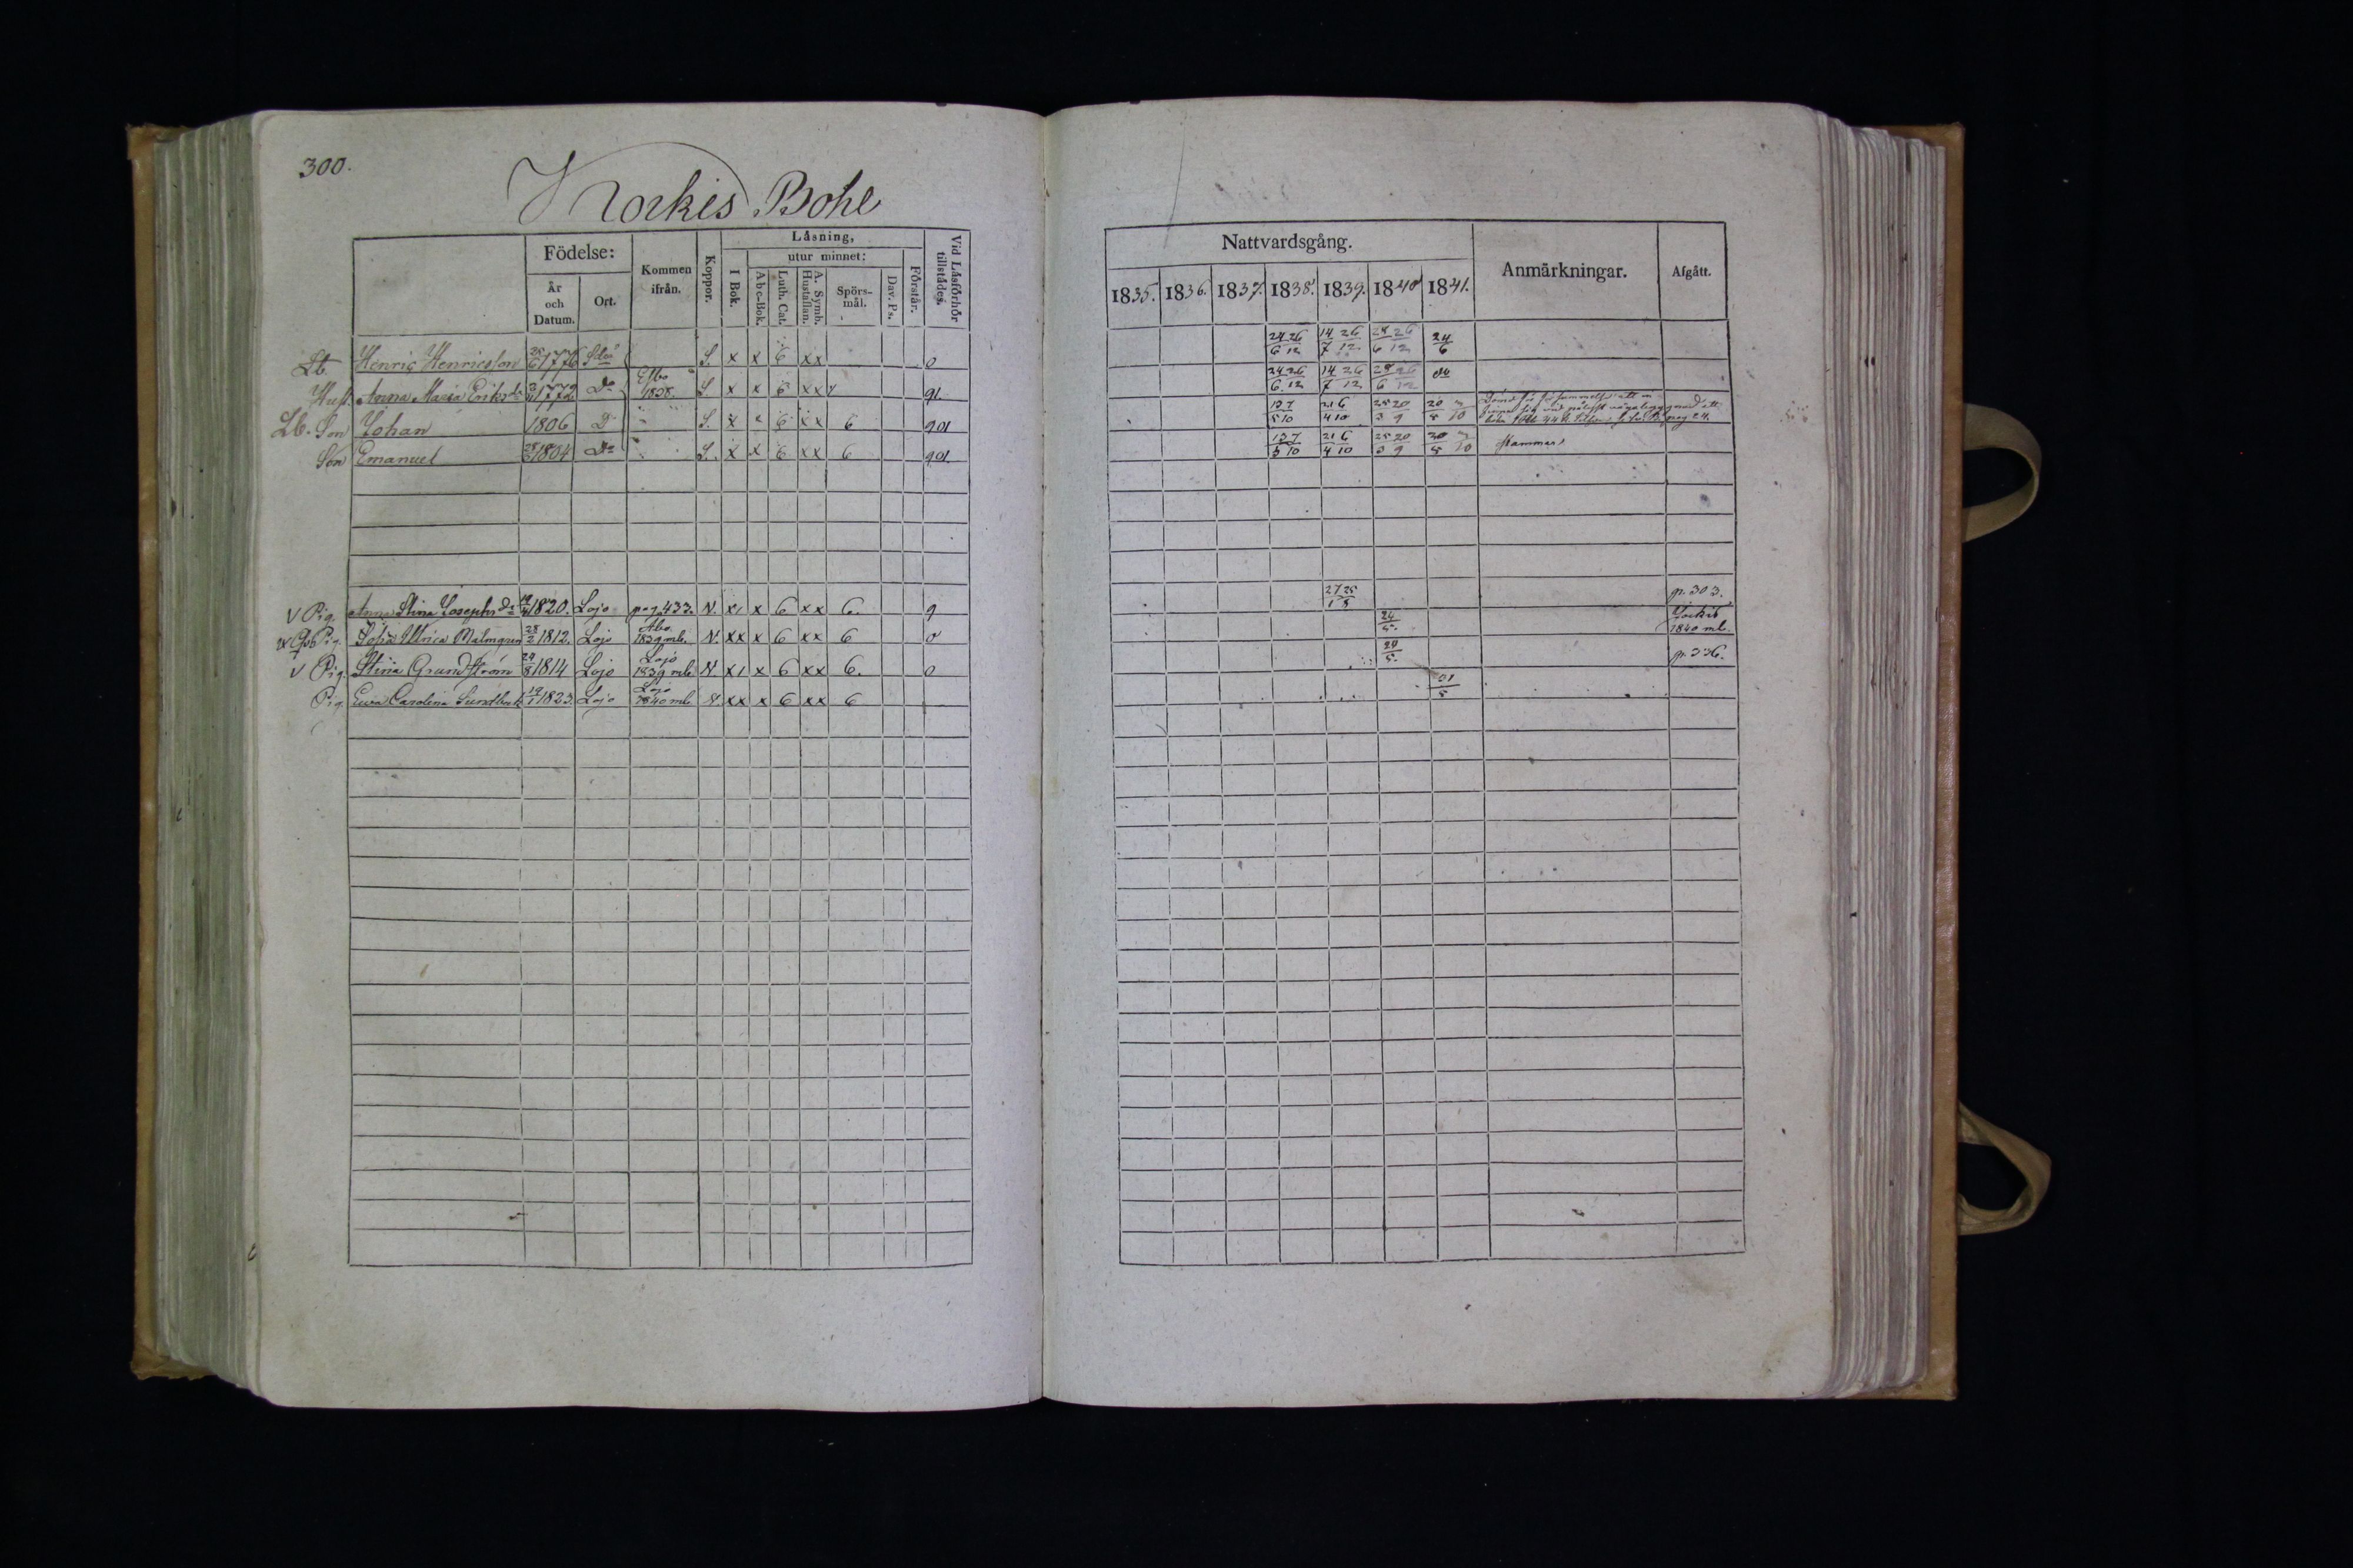 300.
Korkis Bohl
Födelse: Kommen ifrån. Koppor. Läsning, Vid Läsförhör tillstädes.
I Bok. utur minnet: Förstår.
År och Datum. Ort. Abc-Bok. Luth. Cat. A. Symb. Hustaflan. Spörs-mål. Dav. Ps.
Nattvardsgång. Anmärkningar. Afgått.
1835. 1836. 1837. 1838. 1839. 1840 1841.
Lb. Henric Henricsson 1776 S. x x 6 xx 0 24 26 / 6 12 14 26 / 7 12 28 26 / 6 12 24/6
Hust. Anna Maria Eriksdr 1772 Do Esbo 1838. S. x x 6 xx 91 24 26 / 6 12 14 26 / 7 12 28 26 / 6 12 do
Lb. Son Johan 1806 D S. x x 6 xx 6 901 13 7 / 5 10 21 6 / 4 10 25 20 / 3 9 pag 24.
Son Emanuel 1804 Do S. x x 6 xx 6 901 13 7 / 5 10 21 6 / 4 10 25 20 / 3 9 Stammar
V Pig. Anna Stina Josephsdr 1820. Lojo pag. 433. N x1 x 6 xx 6. 9 27 25 / 1 8 p. 303.
Pig. Sofia Ulrica Malmgren 28/2 1812. Lojo Åbo 1839 mb. N. xx x 6 xx 6 0 24/5. 1840 mb.
V Pig. Stina Grundström 24/8 1814 Lojo Lojo 1839 mb N. x1 x 6 xx 6. 0 24/5. p. 336.
Pig. Ewa Carolina 1823. Lojo Lojo 1840 mb N xx x 6 xx 6 31/5